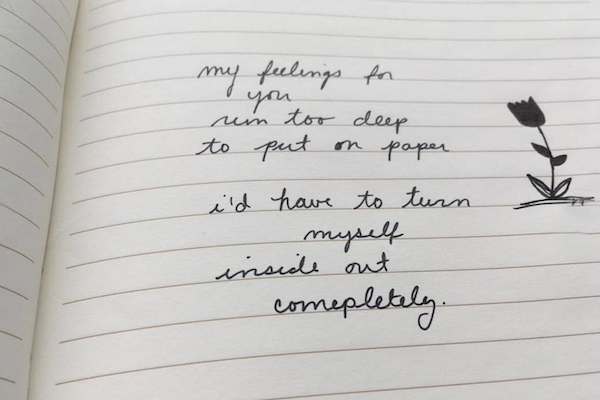 my feelings for
you
run too deep
to put on paper
i'd have to turn
myself
inside out
comepletely.